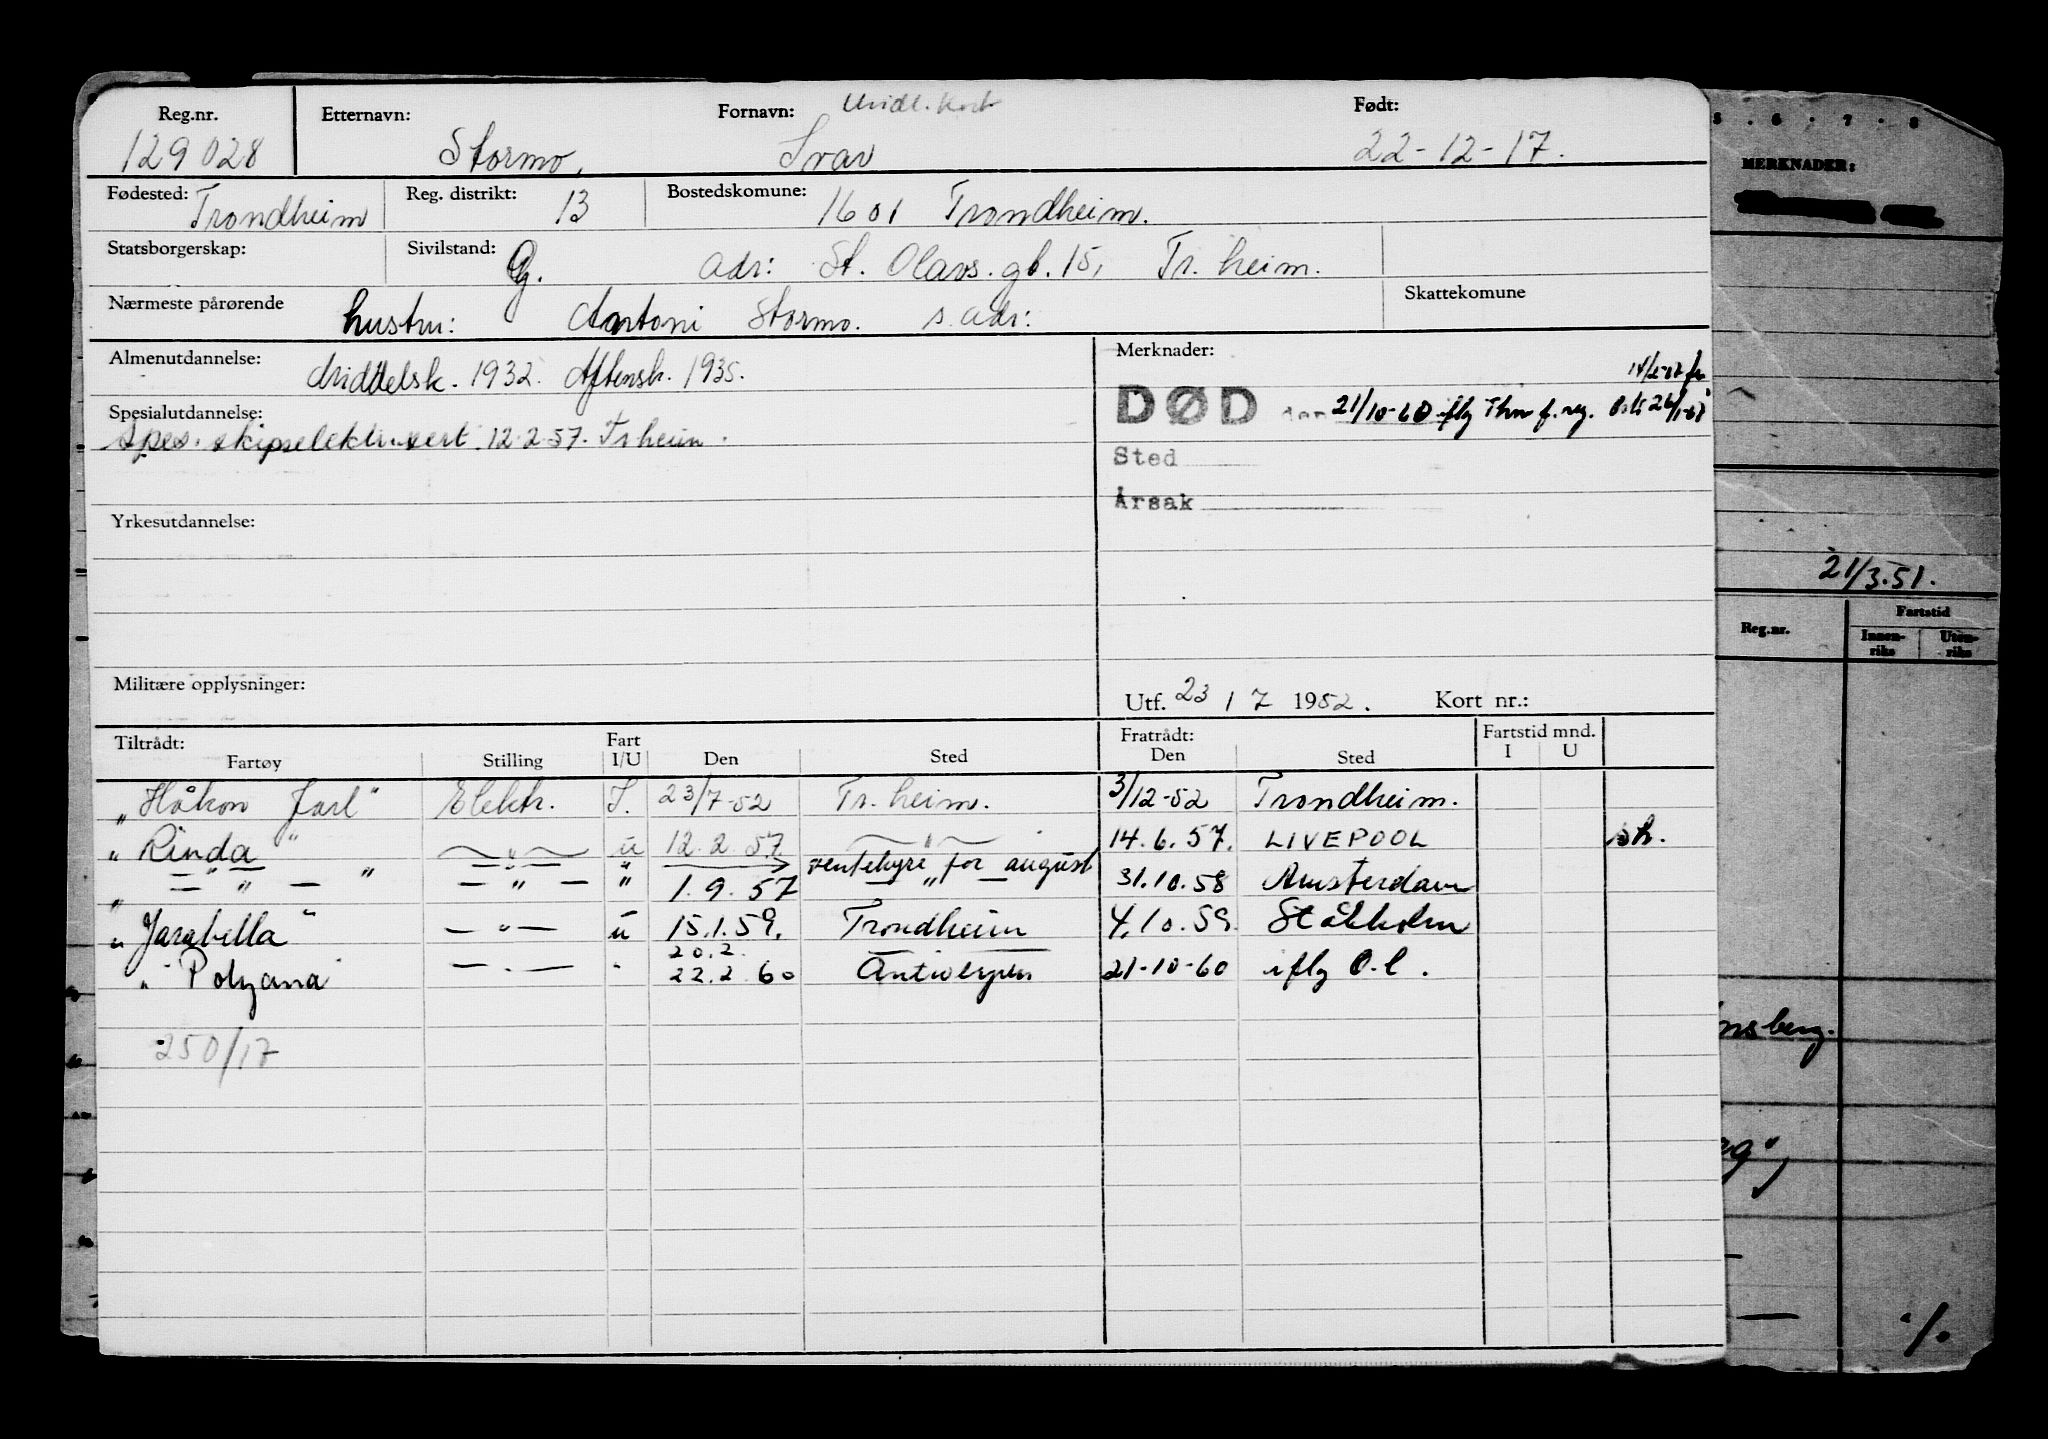 Reg.nr. Etternavn: Fornavn: Midl. Kort Født:
129028 Stormo, Ivar 22-12-17.
Fødested: Trondheim Reg. distrikt: 13 Bostedskomune: 1601 Trondheim.
Statsborgerskap: Sivilstand: G. adr: St. Olavs. gt. 15, Tr. heim.
Nærmeste pårørende hustru: Antoni Stormo. s. adr: Skattekomune
Almenutdannelse: Middelsk. 1932. Aftensk. 1935. Merknader:
DØD den 21/10-60 iflg Thm f. reg.
Spesialutdannelse:
Spes. skipselektr.sert. 12.2.57. Trheim.
Sted
Årsak
Yrkesutdannelse:
Militære opplysninger: Utf. 23 / 7 1952. Kort nr.:
Tiltrådt: Fart Fratrådt: Fartstid mnd.
Fartøy Stilling I/U Den Sted Den Sted I U
"Håkon Jarl" Elektr. I. 23/7-52 Tr. heim. 3/12-52 Trondheim.
"Rinda" — " — u 12.2.57. — " — 14.6.57. LIVEPOOL sh.
ventehyre for august
" — " — " — " — " 1.9.57 — " — 31.10.58 Amsterdam
"Jarabella" — " — u 15.1.59. Trondheim 4.10.59. Stokholm
20.2.
"Polyana" — " — " 22.2.60 Antwerpen 21-10-60 iflg O.l.
250/17
5 . 6 . 7 . 8
MERKNADER:
21/3.51.
Reg.nr. Fartstid
Innen-riks Uten-riks
nsberg.
rg",